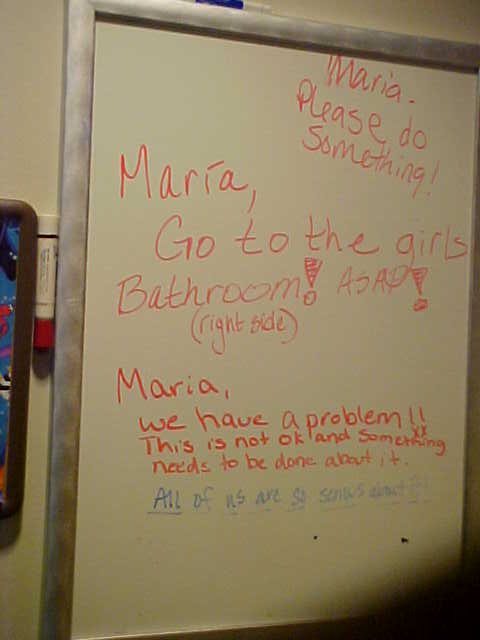 Maria.
Please do
Something!
María,
Go to the girls
Bathroom! ASAP!
(right side)
Maria,
we have a problem!!
This is not ok and something
needs to be done about it.
All of us are so serious about